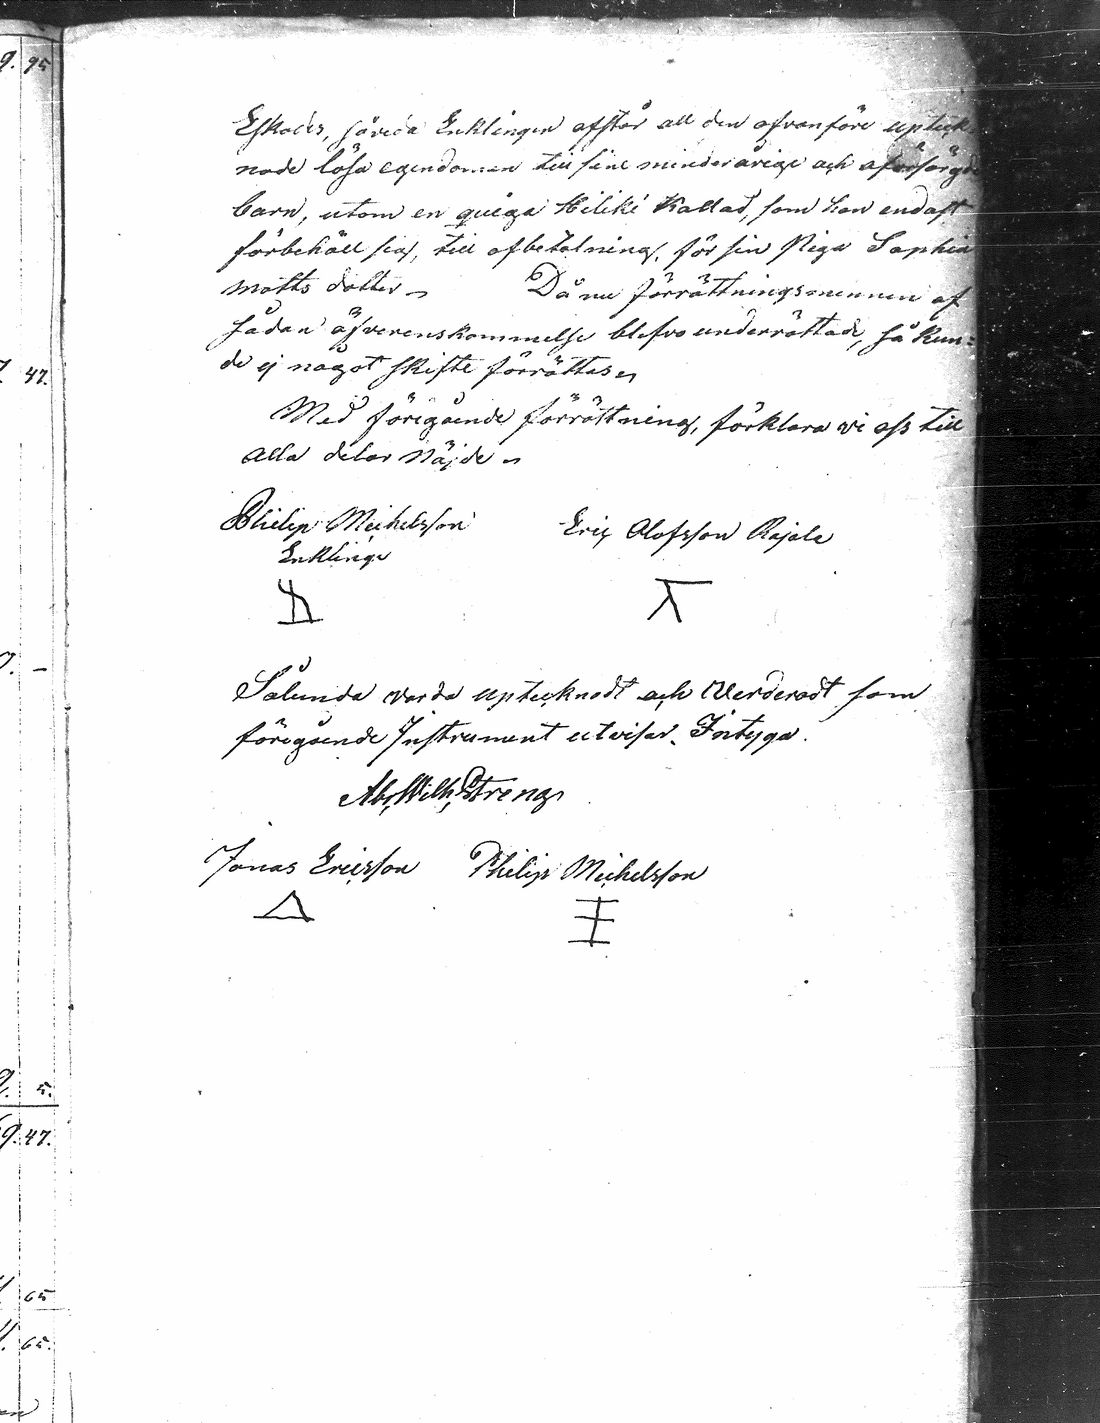 9. 95
Eskades, såvida Enklingen afstår all den ofvanföre uptek-
nade lösa egendomen till sine minderårige och oförsörgde
barn, utom en quiga Hiliki Kallad, som han endast
förbehåll sig, till afbetalning, för sin Piga Sophia
Matts dotter – Då nu förrättningsmennen af
sådan öfverenskommelse blefvo underrättade, så kun=
de ej något skifte förrättas
47.
Med förigående förrättning, förklara vi oss till
alla delar Nöjde
Philip Michelsson Eric Olofsson Rajala
Enklinge
Sålunda varda uptecknadt och Verderadt som
föregående Instrument utvisar, Intyga.
Abr, Wilh, Streng
Jonas Ericsson Philip Michelsson
5.
9. 47.
65
65.